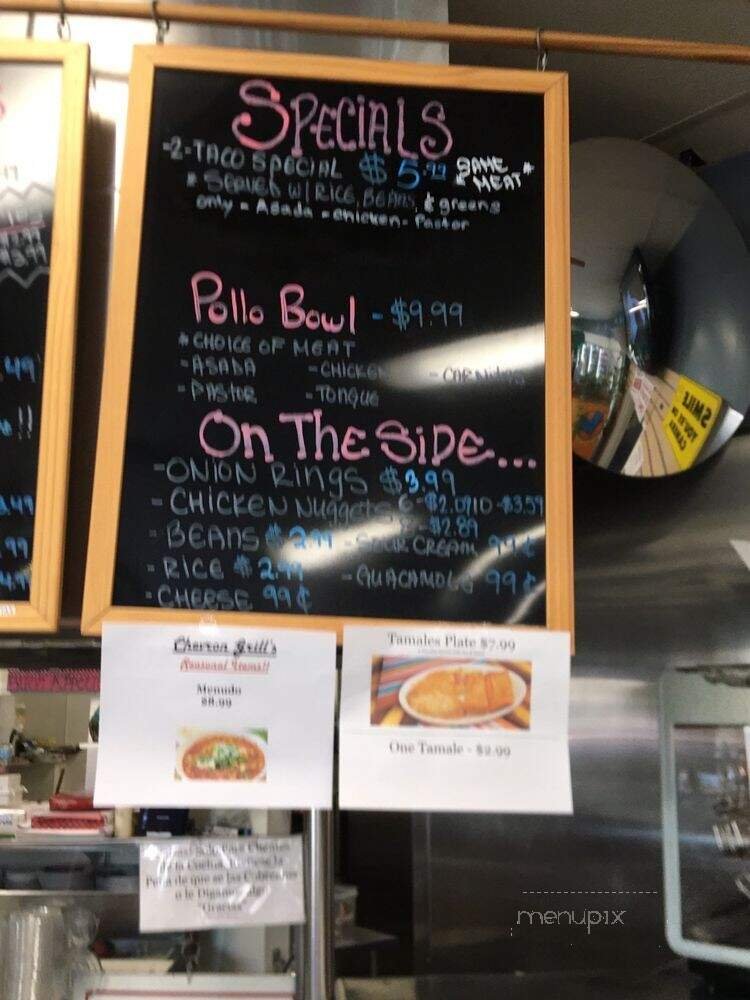 SPECIALS
-2-TACO SPECIAL $5.99 *SAME MEAT*
* SERVED W/ RICE, BEANS, & greens
only - Asada - chicken - Pastor
Pollo Bowl - $9.99
*CHOICE OF MEAT
-ASADA -CHICKEN -CARNITAS
-PASTOR -TONGUE
On THE SiDE...
-ONION RINGS $3.99
- CHICKEN NUGGETS 6-$2.09 10-$3.59
8-$2.89
- BEANS $2.99 -SOUR CREAM 99¢
- RICE $2.99 -GUACAMOLE 99¢
- CHEESE 99¢
Chevron Grill's
Seasonal Items!!
Menudo
$8.99
Tamales Plate $7.99
One Tamale - $2.99
menupix